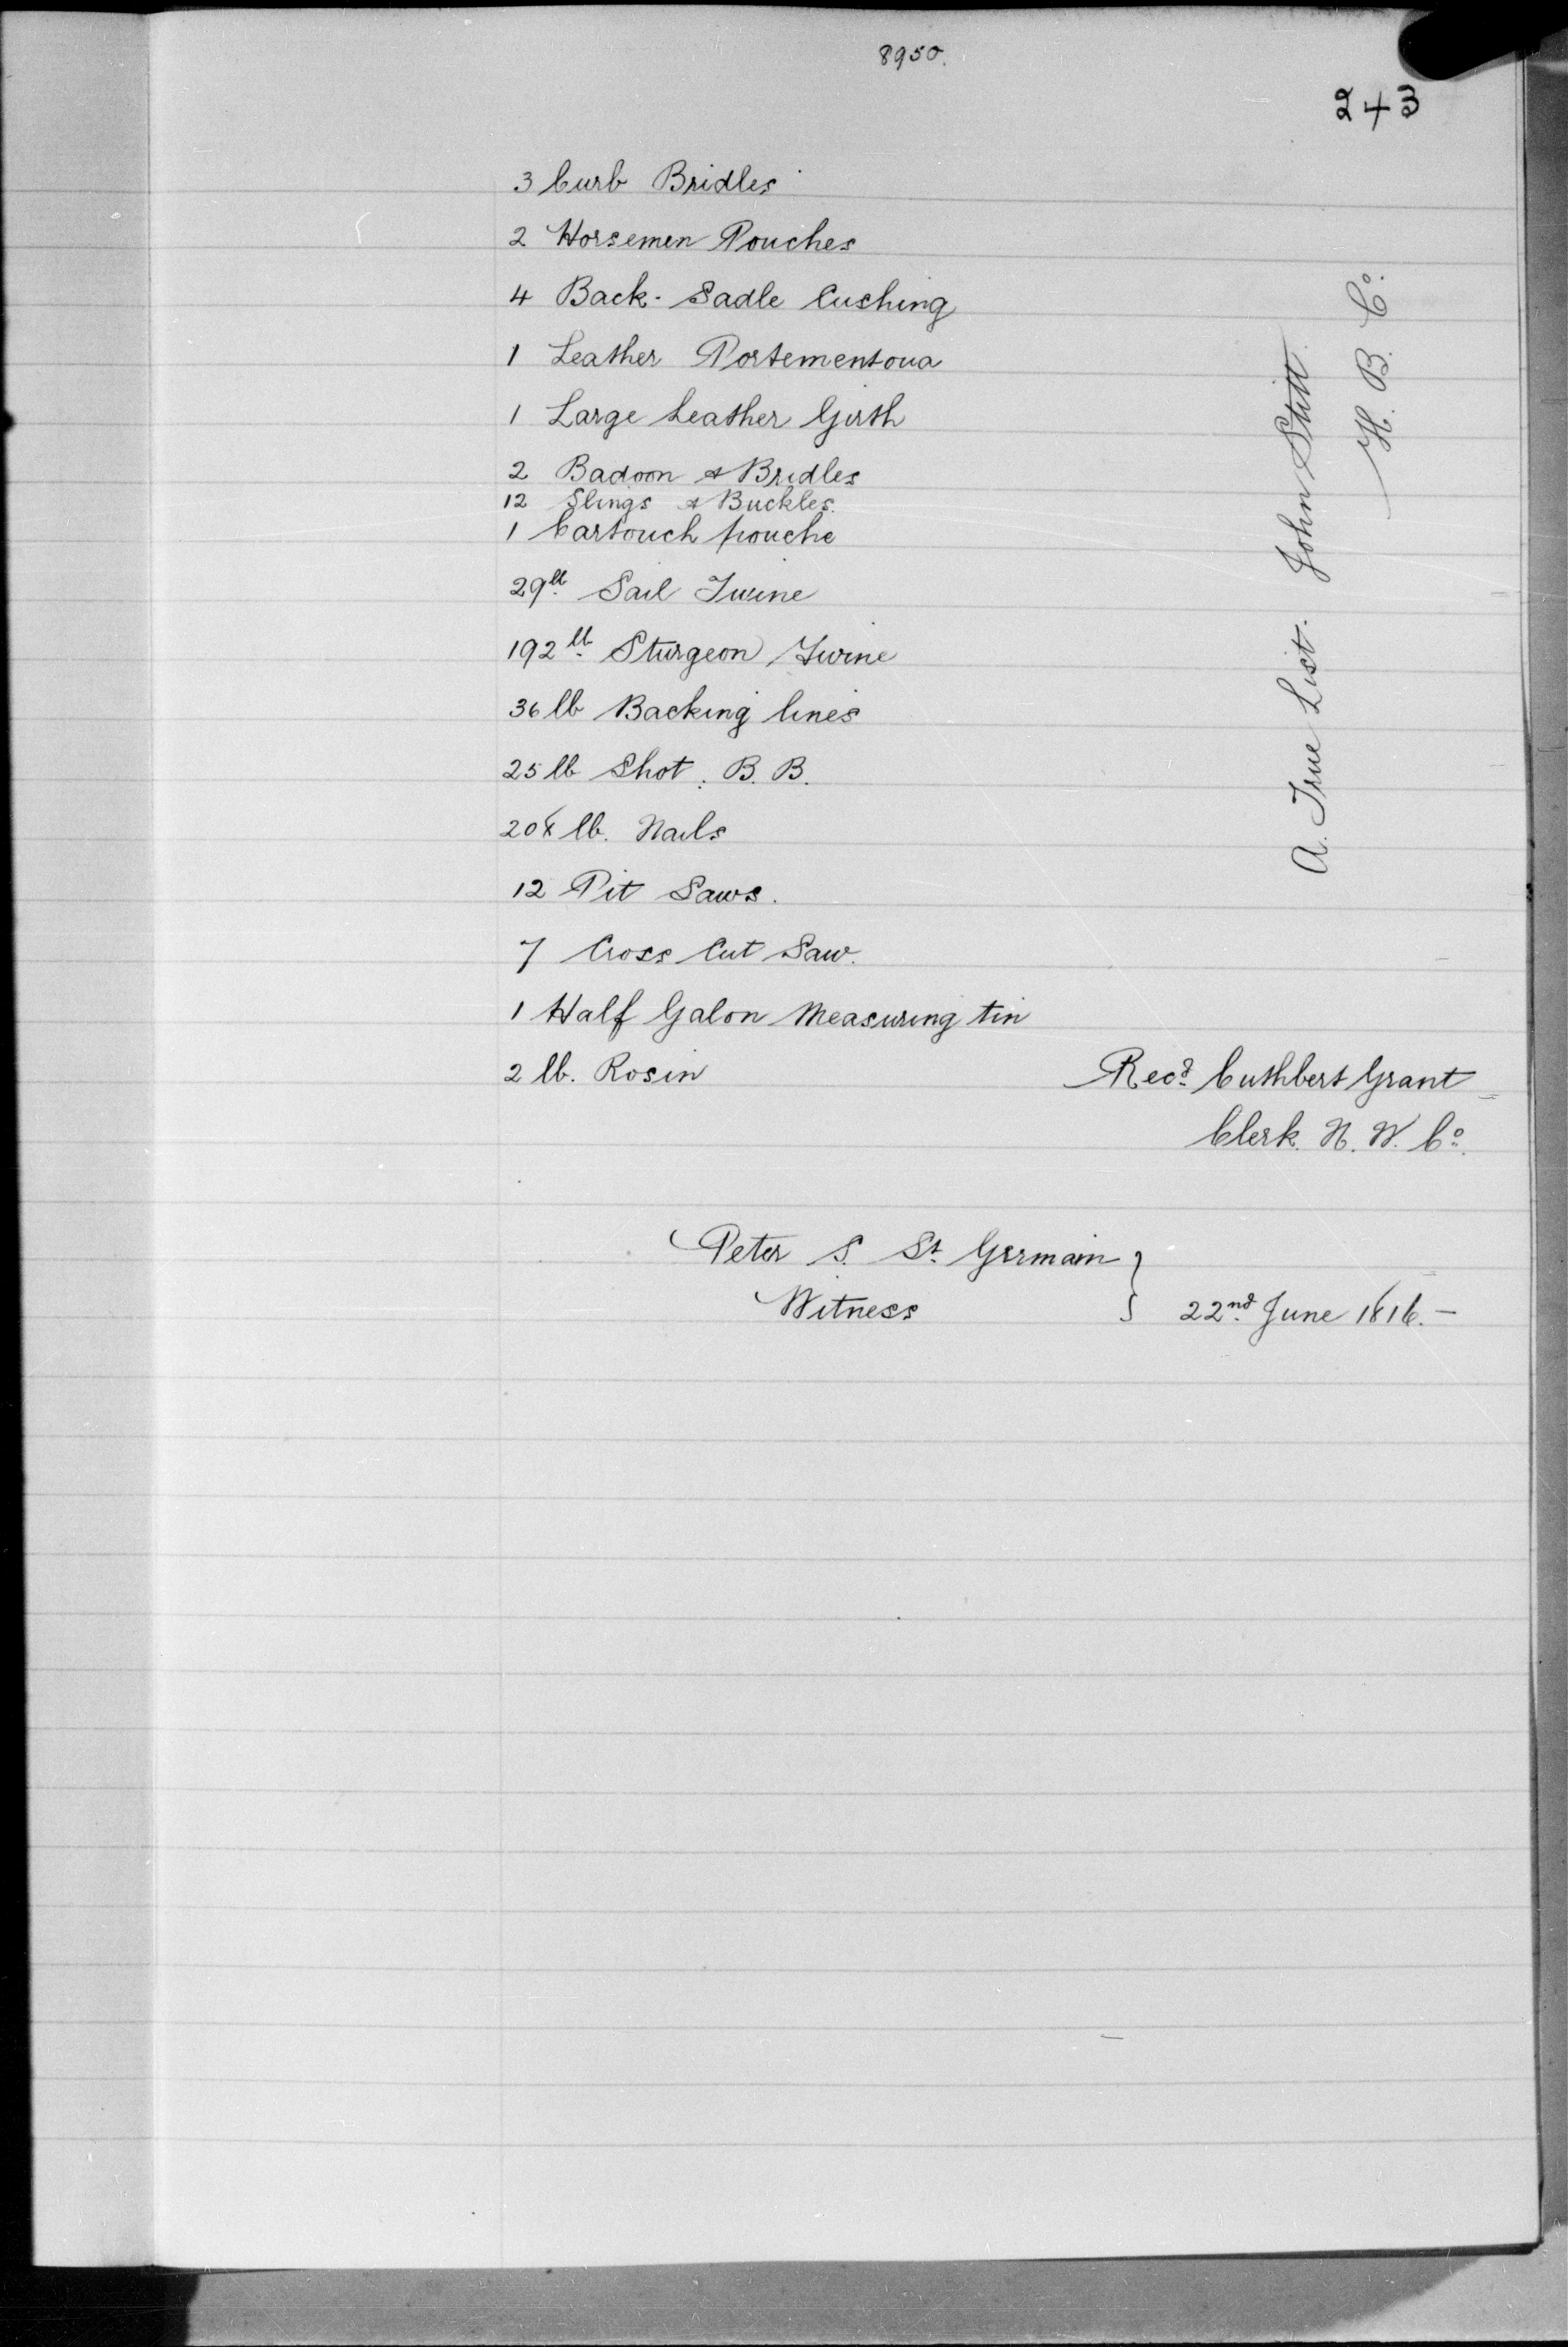 8950.
243
3 Curb Bridles
2 Horsemen Pouches
4 Back-Sadle Cushing
1 Leather Portementoua
1 Large Leather Girth
2 Badoon & Bridles
12 Slings & Buckles.
1 Cartouch pouche
29lb Sail Twine
192lb Sturgeon Twine
36 lb Backing lines
25 lb Shot. B. B.
208 lb. Nails
12 Pit Saws.
7 Cross Cut Saw.
1 Half Galon Measuring tin
2 lb. Rosin
A. True List. John Stitt.
H. B. Co.
Recd. Cuthbert Grant
Clerk. N. W. Co.
Peter S. St. Germain }
Witness } 22nd. June 1816.—